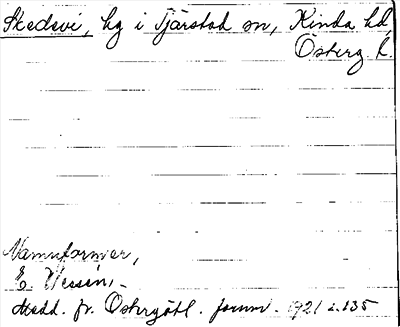 Skedevi, hg i Tjärstad sn, Kinda hd,
Österg l.
Namnformer,
E. Wessén,
Medd. fr. Östergötl. fornm. 1921 s. 135